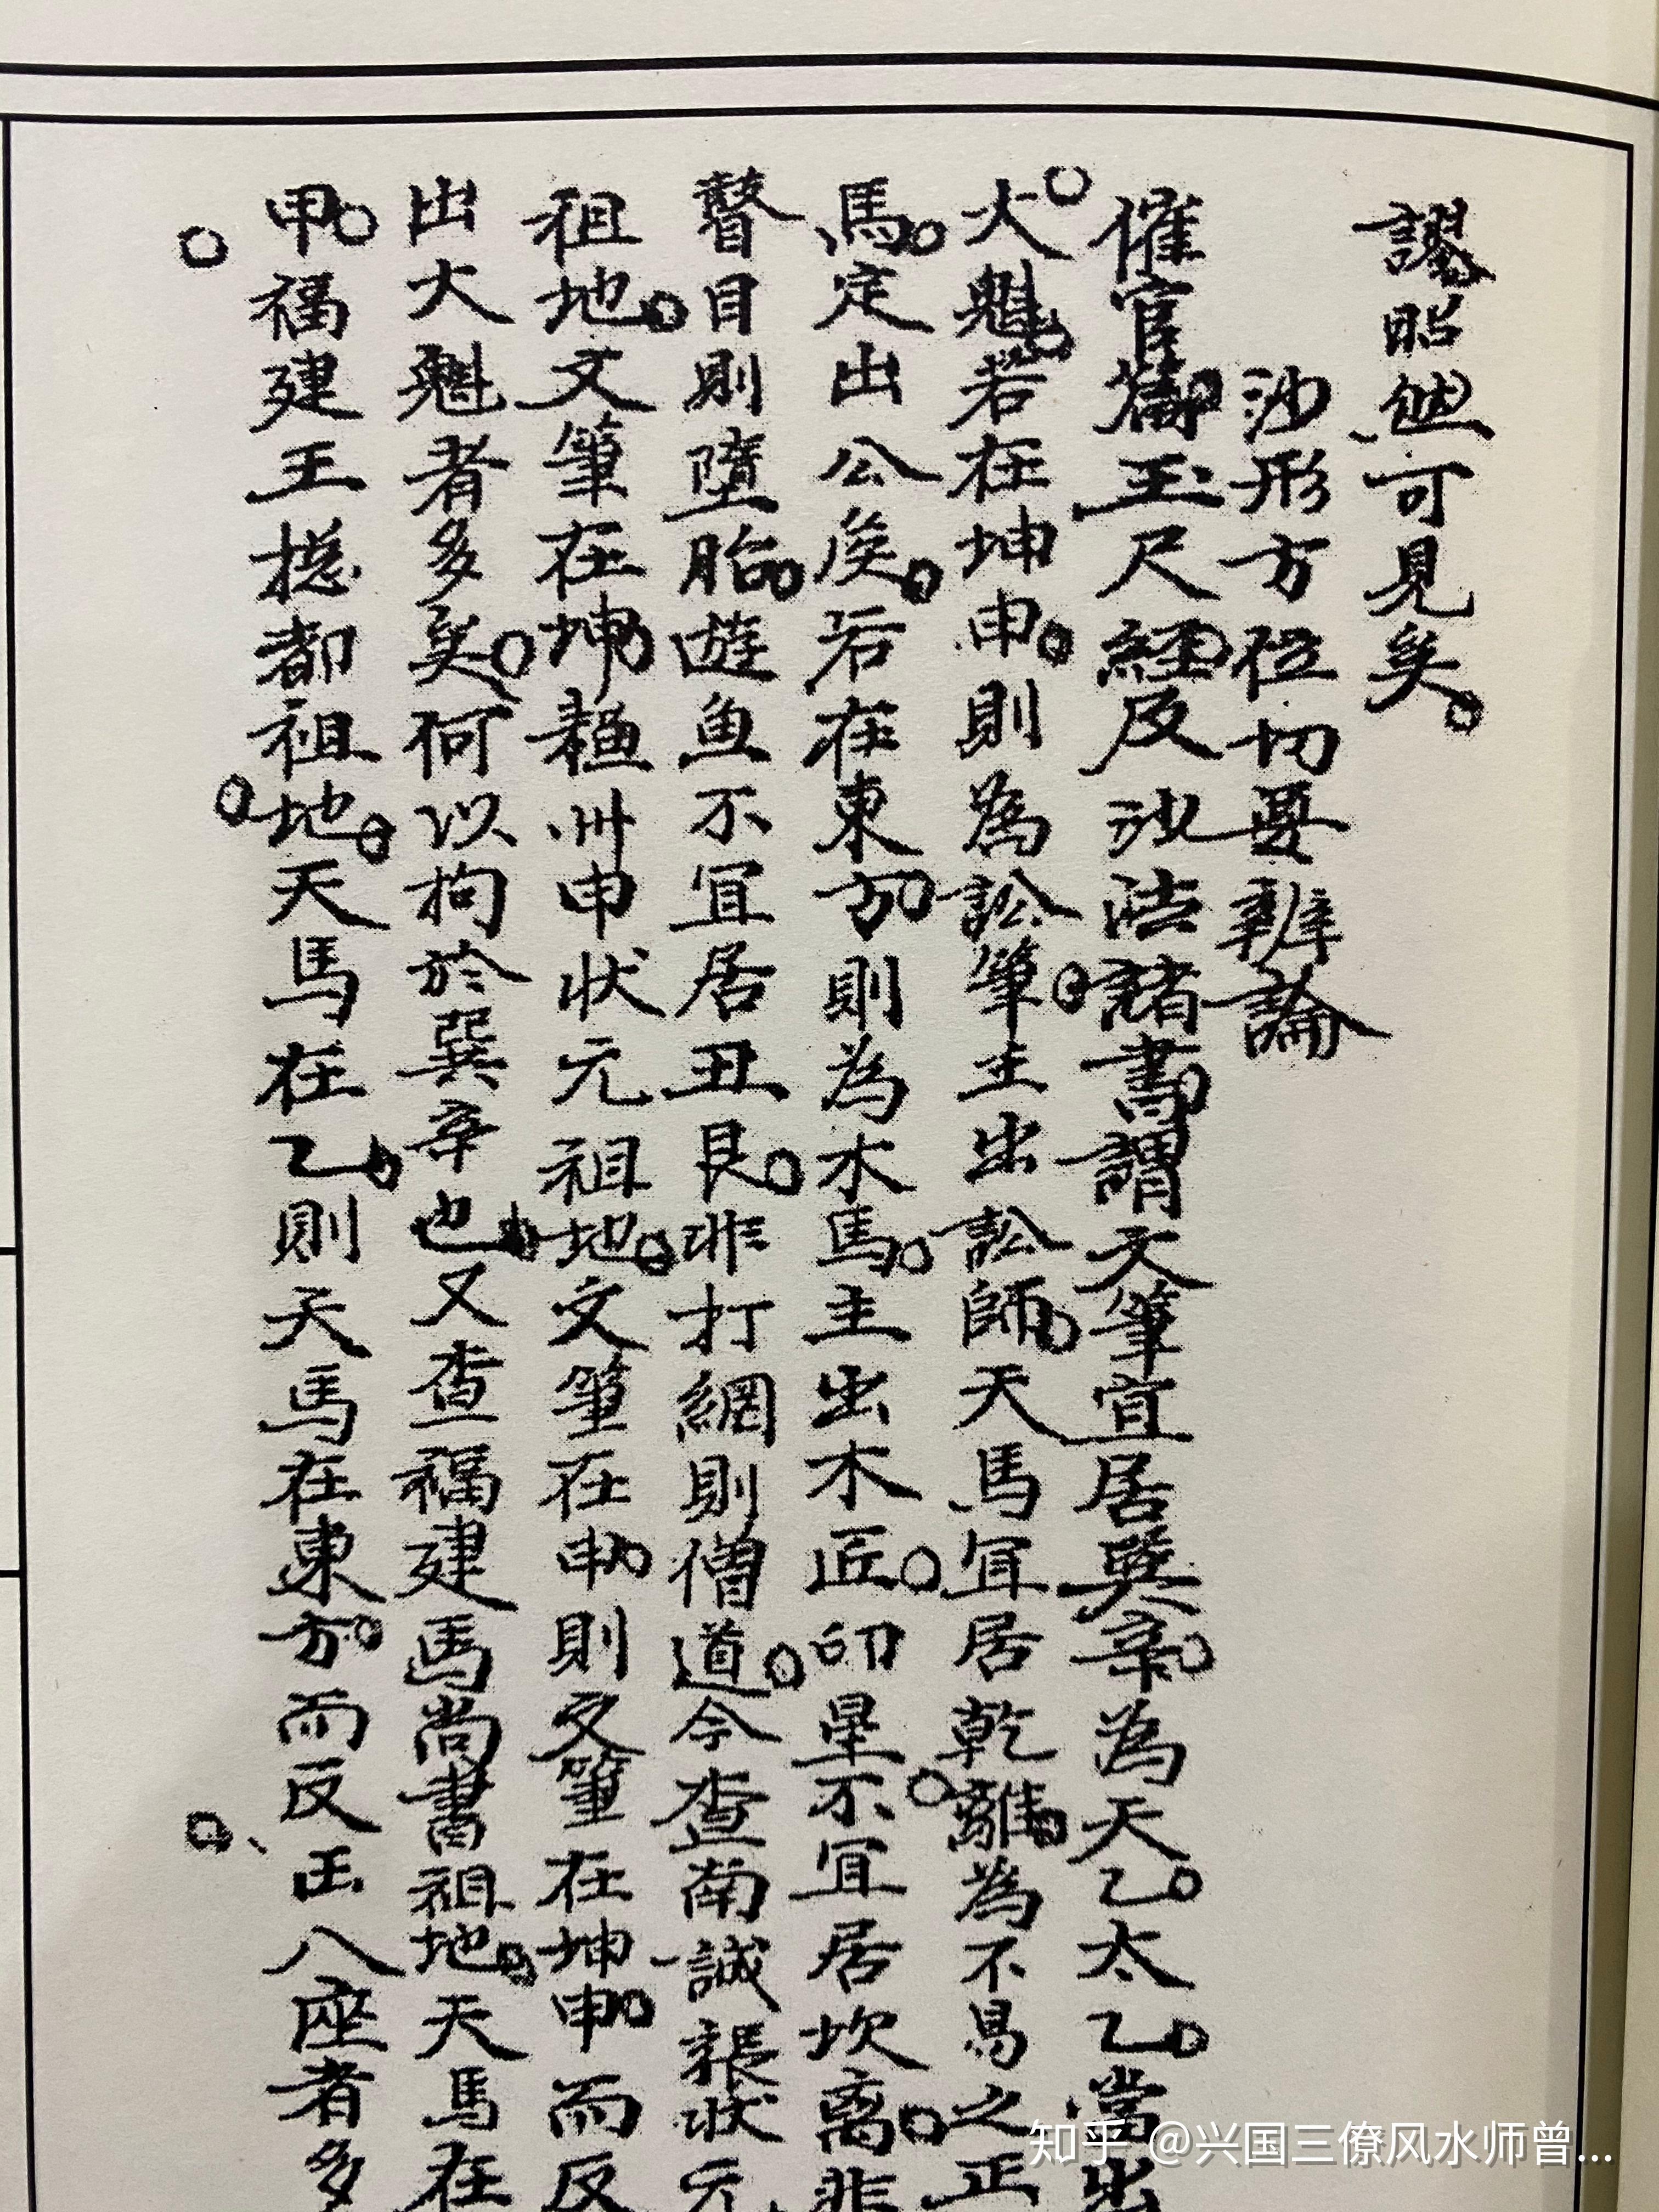 謬昭然可見矣
沙形方位切要辨論
催官篇玉尺經及沙法諸書謂天筆宜居巽辛為天乙太乙當出
大魁若在坤申則為訟筆主出訟師天馬宜居乾離為不易之正
馬定出公侯若在東方則為木馬主出木匠印星不宜居坎离非
瞽目則墮胎遊魚不宜居丑艮非打網則僧道今查南誠張狀元
祖地文筆在坤福州申狀元祖地文筆在申則文筆在坤申而反
出大魁者多矣何以拘於巽辛也又查福建馬尚書祖地天馬在
甲福建王總都祖地天馬在乙則天馬在東方而反正八座者多
知乎 @兴国三僚风水师曾...